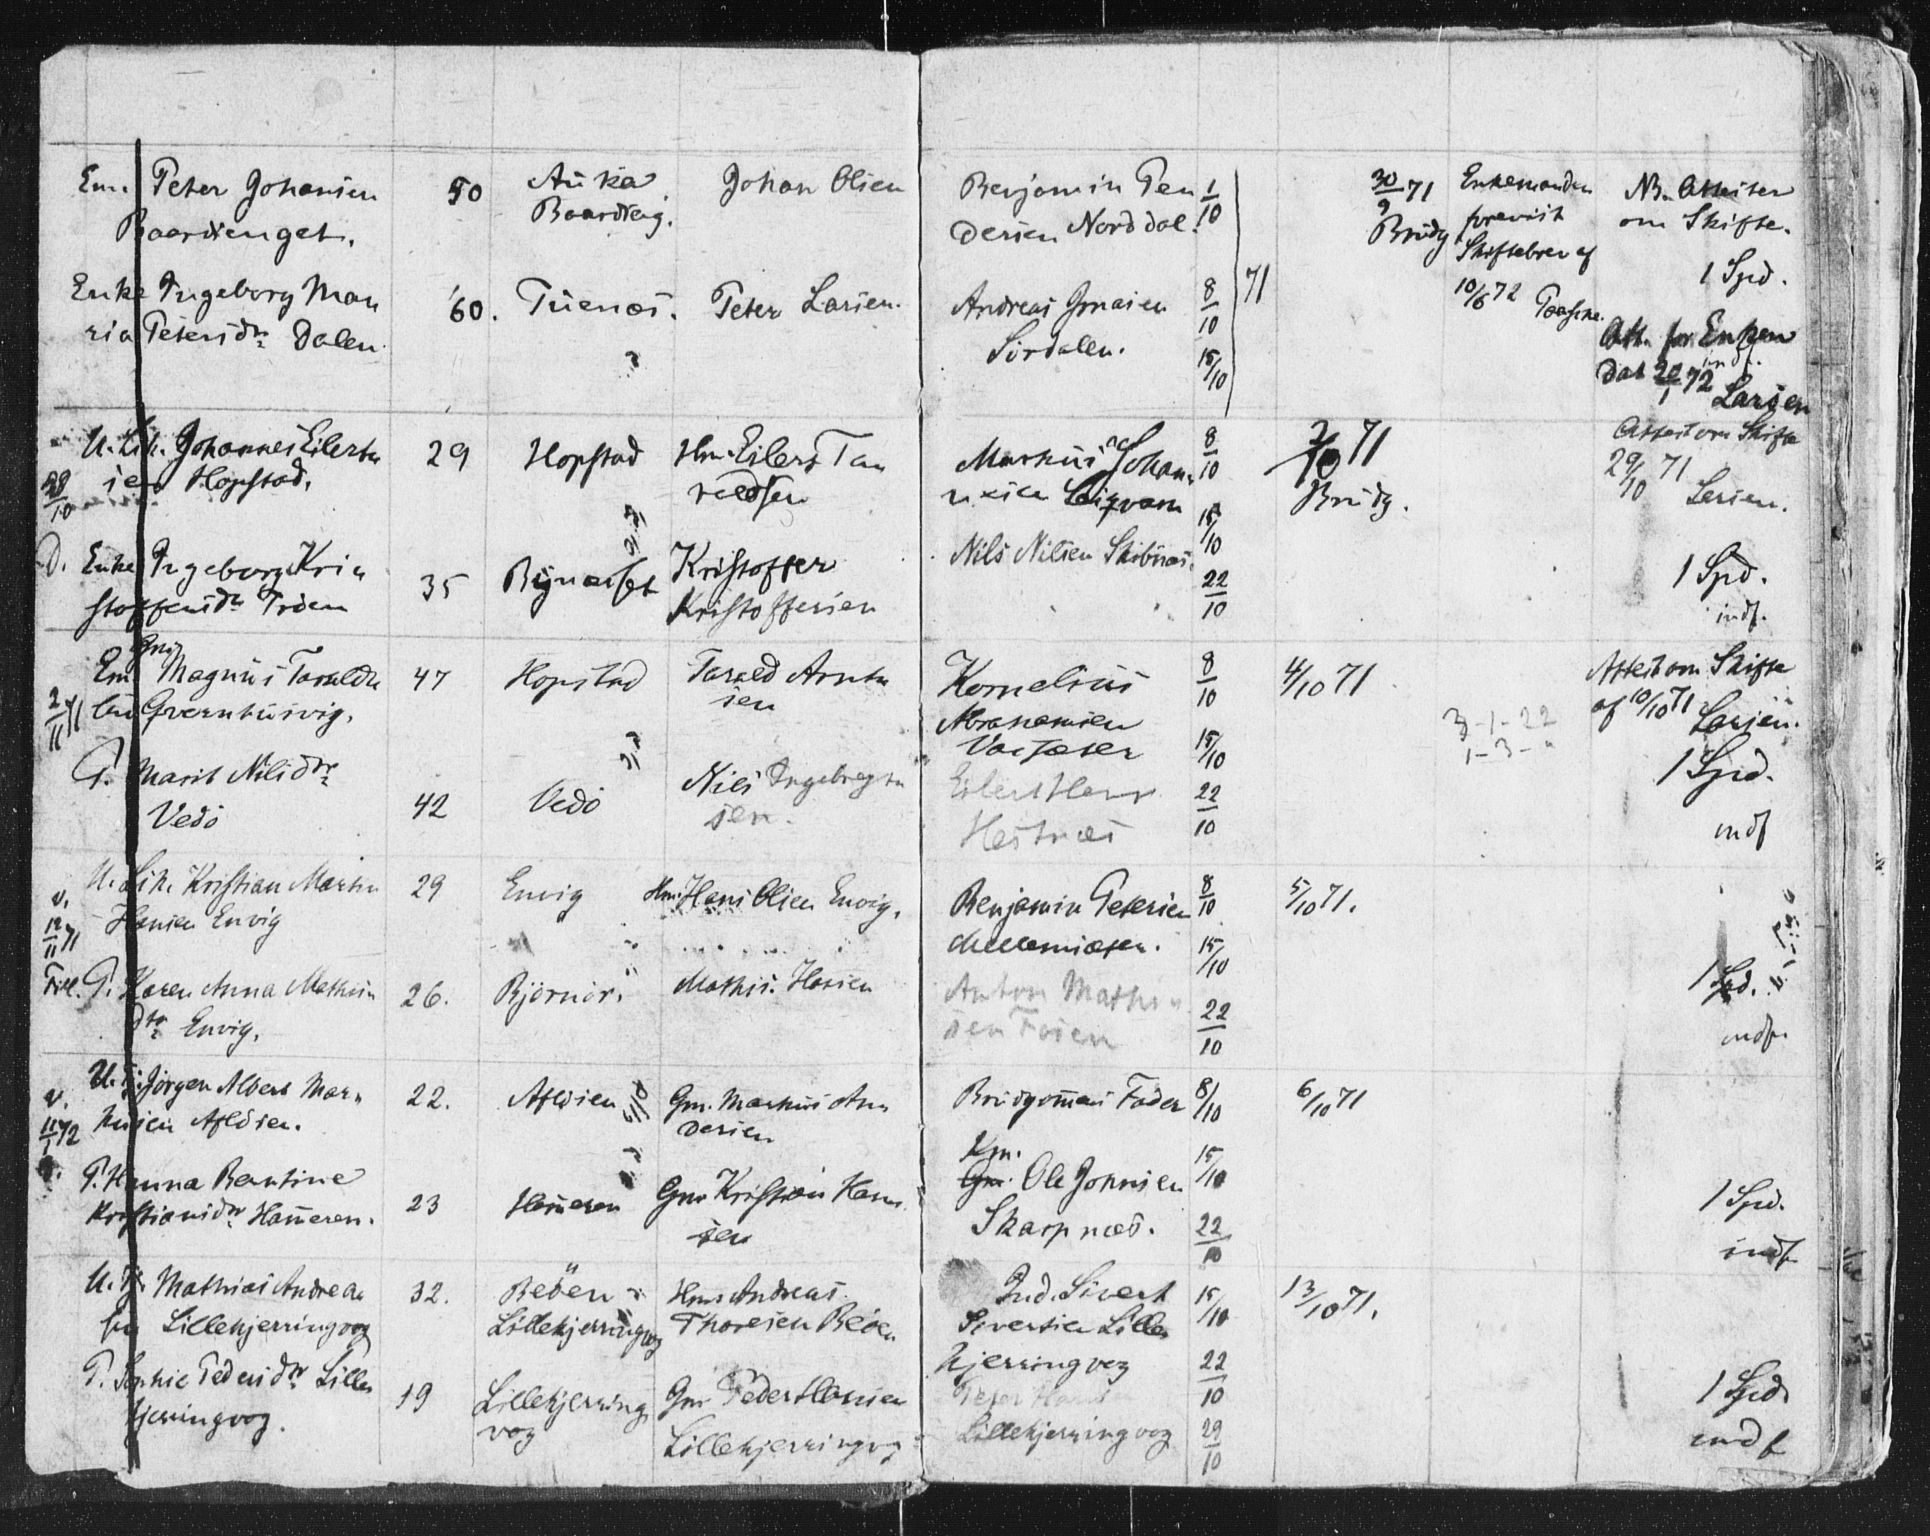 Em. Peter Johansen
Baardsenget.
50
Baardseng.
Johan Olsen
Benjamin Peu
dersen Norddal.
1/10
30/9 71
Brudg
Enkemanden
forevist
Skiftebrev af
10/6 72
NB. Attester
om Skifte.
1 Spd.
Enke Ingeborg Mar
ria Petersdtr Dalen
60.
Tuenæs.
Peter Larsen.
Andreas Jonasen
Sördalen.
8/10
15/10
71
Att. for Enken
dat 20/1 72
Larsen
U. Johannes Eilertn
sen Hopstad.
29/10
29
Hopstad
Hm. Eilert Tar
raldsen
Markus Johan
8/10
15/10
2/10 71
Brudg.
Attest om Skifte
29/10 71
Larsen.
Enke Ingeborg Kris
stoffersdtr
35
Kristoffer
Kristoffersen
Nils Nilsen Skibnæs.
22/10
1 Spd.
indf.
Gm
Em Magnus Taraldn
sen Grønhusvig.
2/11 71
47
Hopstad
Tarald Arntn
sen
Kornelius
Abrahamsen
8/10
15/10
4/10 71
3-1-22
1-3-"
Attest om Skifte
af 10/10 71
Larsen.
1 Spd.
P. Marit Nilsdtr
Vedö
42
Vedö
Nils Ingebregtn
sen.
Eilert
Hestnæs
22/10
indf
U. Kristian Martin
Hansen Envig
v.
12/11 71
Till.
29
Envig
Hm. Hans Olsen Envig.
Benjamin Petersen
8/10
15/10
5/10 71.
P. Karen Anna Mathis
dtr Envig.
26.
Björnör.
Mathis Hansen
Anton Mathi
sen
22/10
1 Spd.
indf.
U. Jörgen Albert Mar
kusen Afldsen.
v.
11/1 72
22.
Afldsen
Gm. Markus An
dersen
Brudgommens Fader
8/10
6/10 71
P. Hanna Bentine
Kristiansdtr Hammeren.
23
Hammeren
Gm Kristian Hans
sen
Km.
Gm. Ole Johnsen
Skarpnæs.
15/10
22/10
1 Spd.
indf
U. Mathias Andrea
sen Lillekjerringvog
32.
Beöen
Lillekjerringvog
Hm Andreas
Thoresen Beöen
Ind. Sivert
Sivertsen Lille
kjerringvog
15/10
22/10
13/10 71.
P. Sophie Pedersdtr Lille
kjerringvog.
19
Lillekjerring
vog
Gm Peder Hansen
Lillekjerringvog
Peter Hans
Lillekjerringvog
29/10
1 Spd
indf